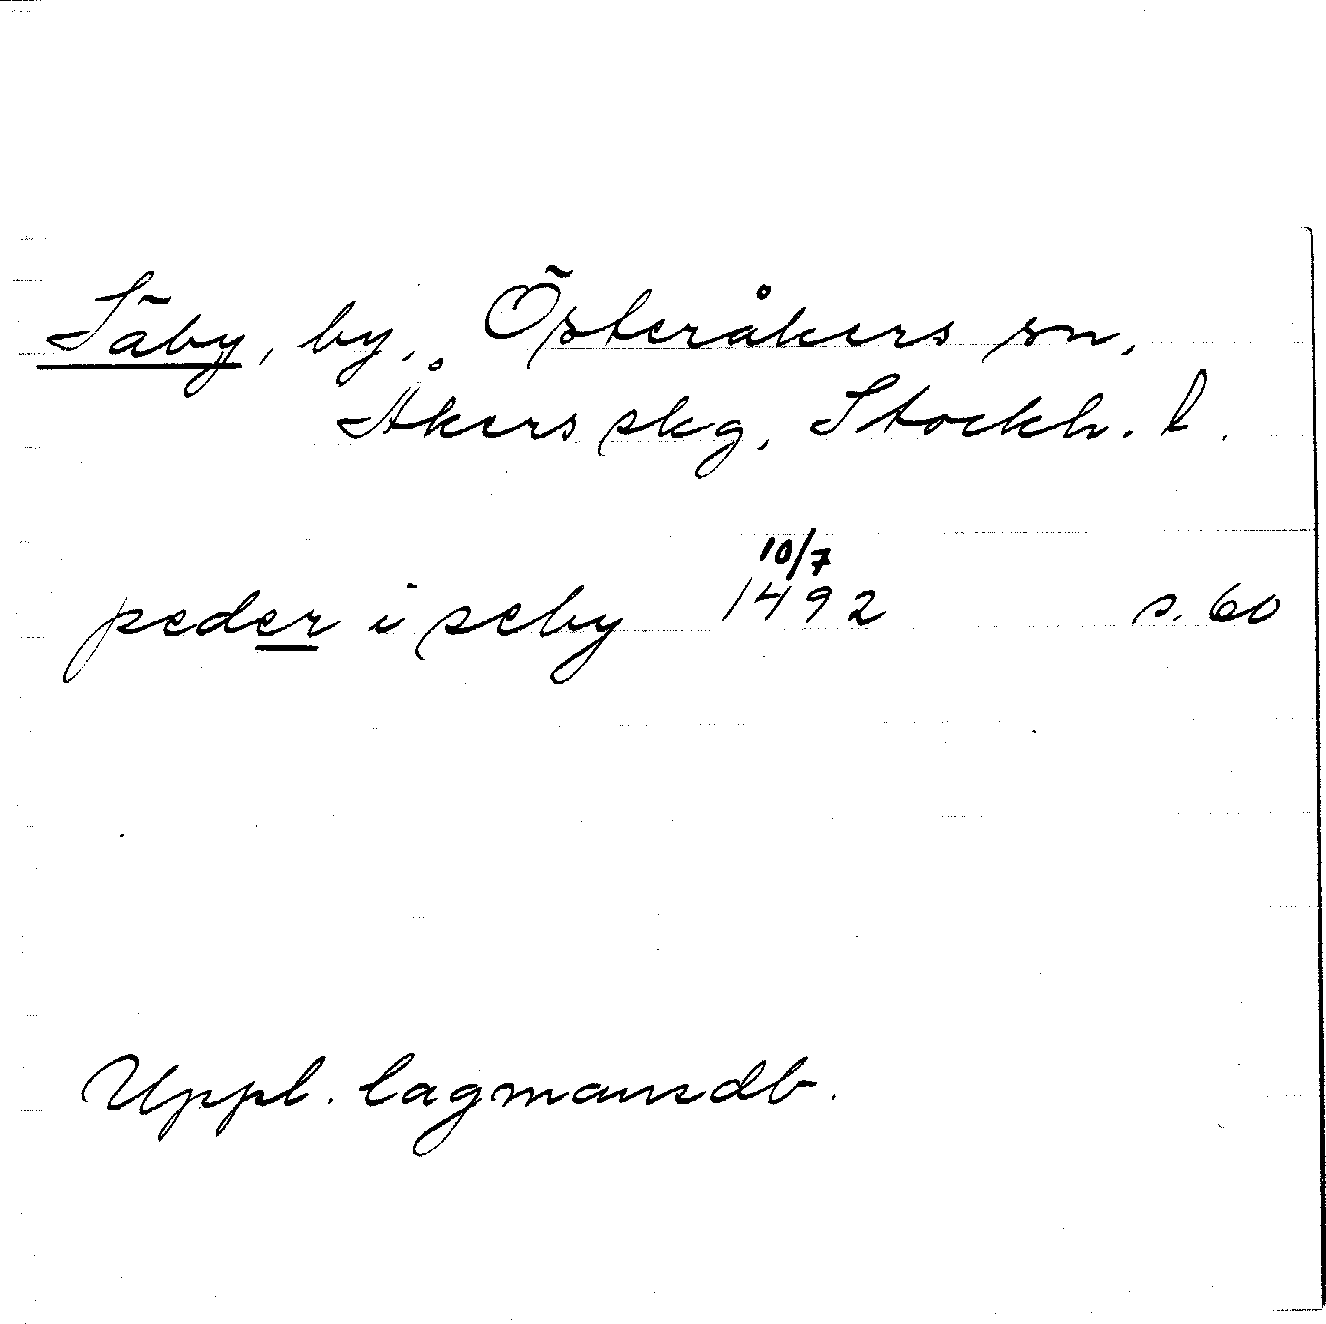 Säby, by, Österåkers sn,
Åkers skg, Stockh. l.
10/7
peder i seby 1492 s. 60
Uppl. lagmansdb.